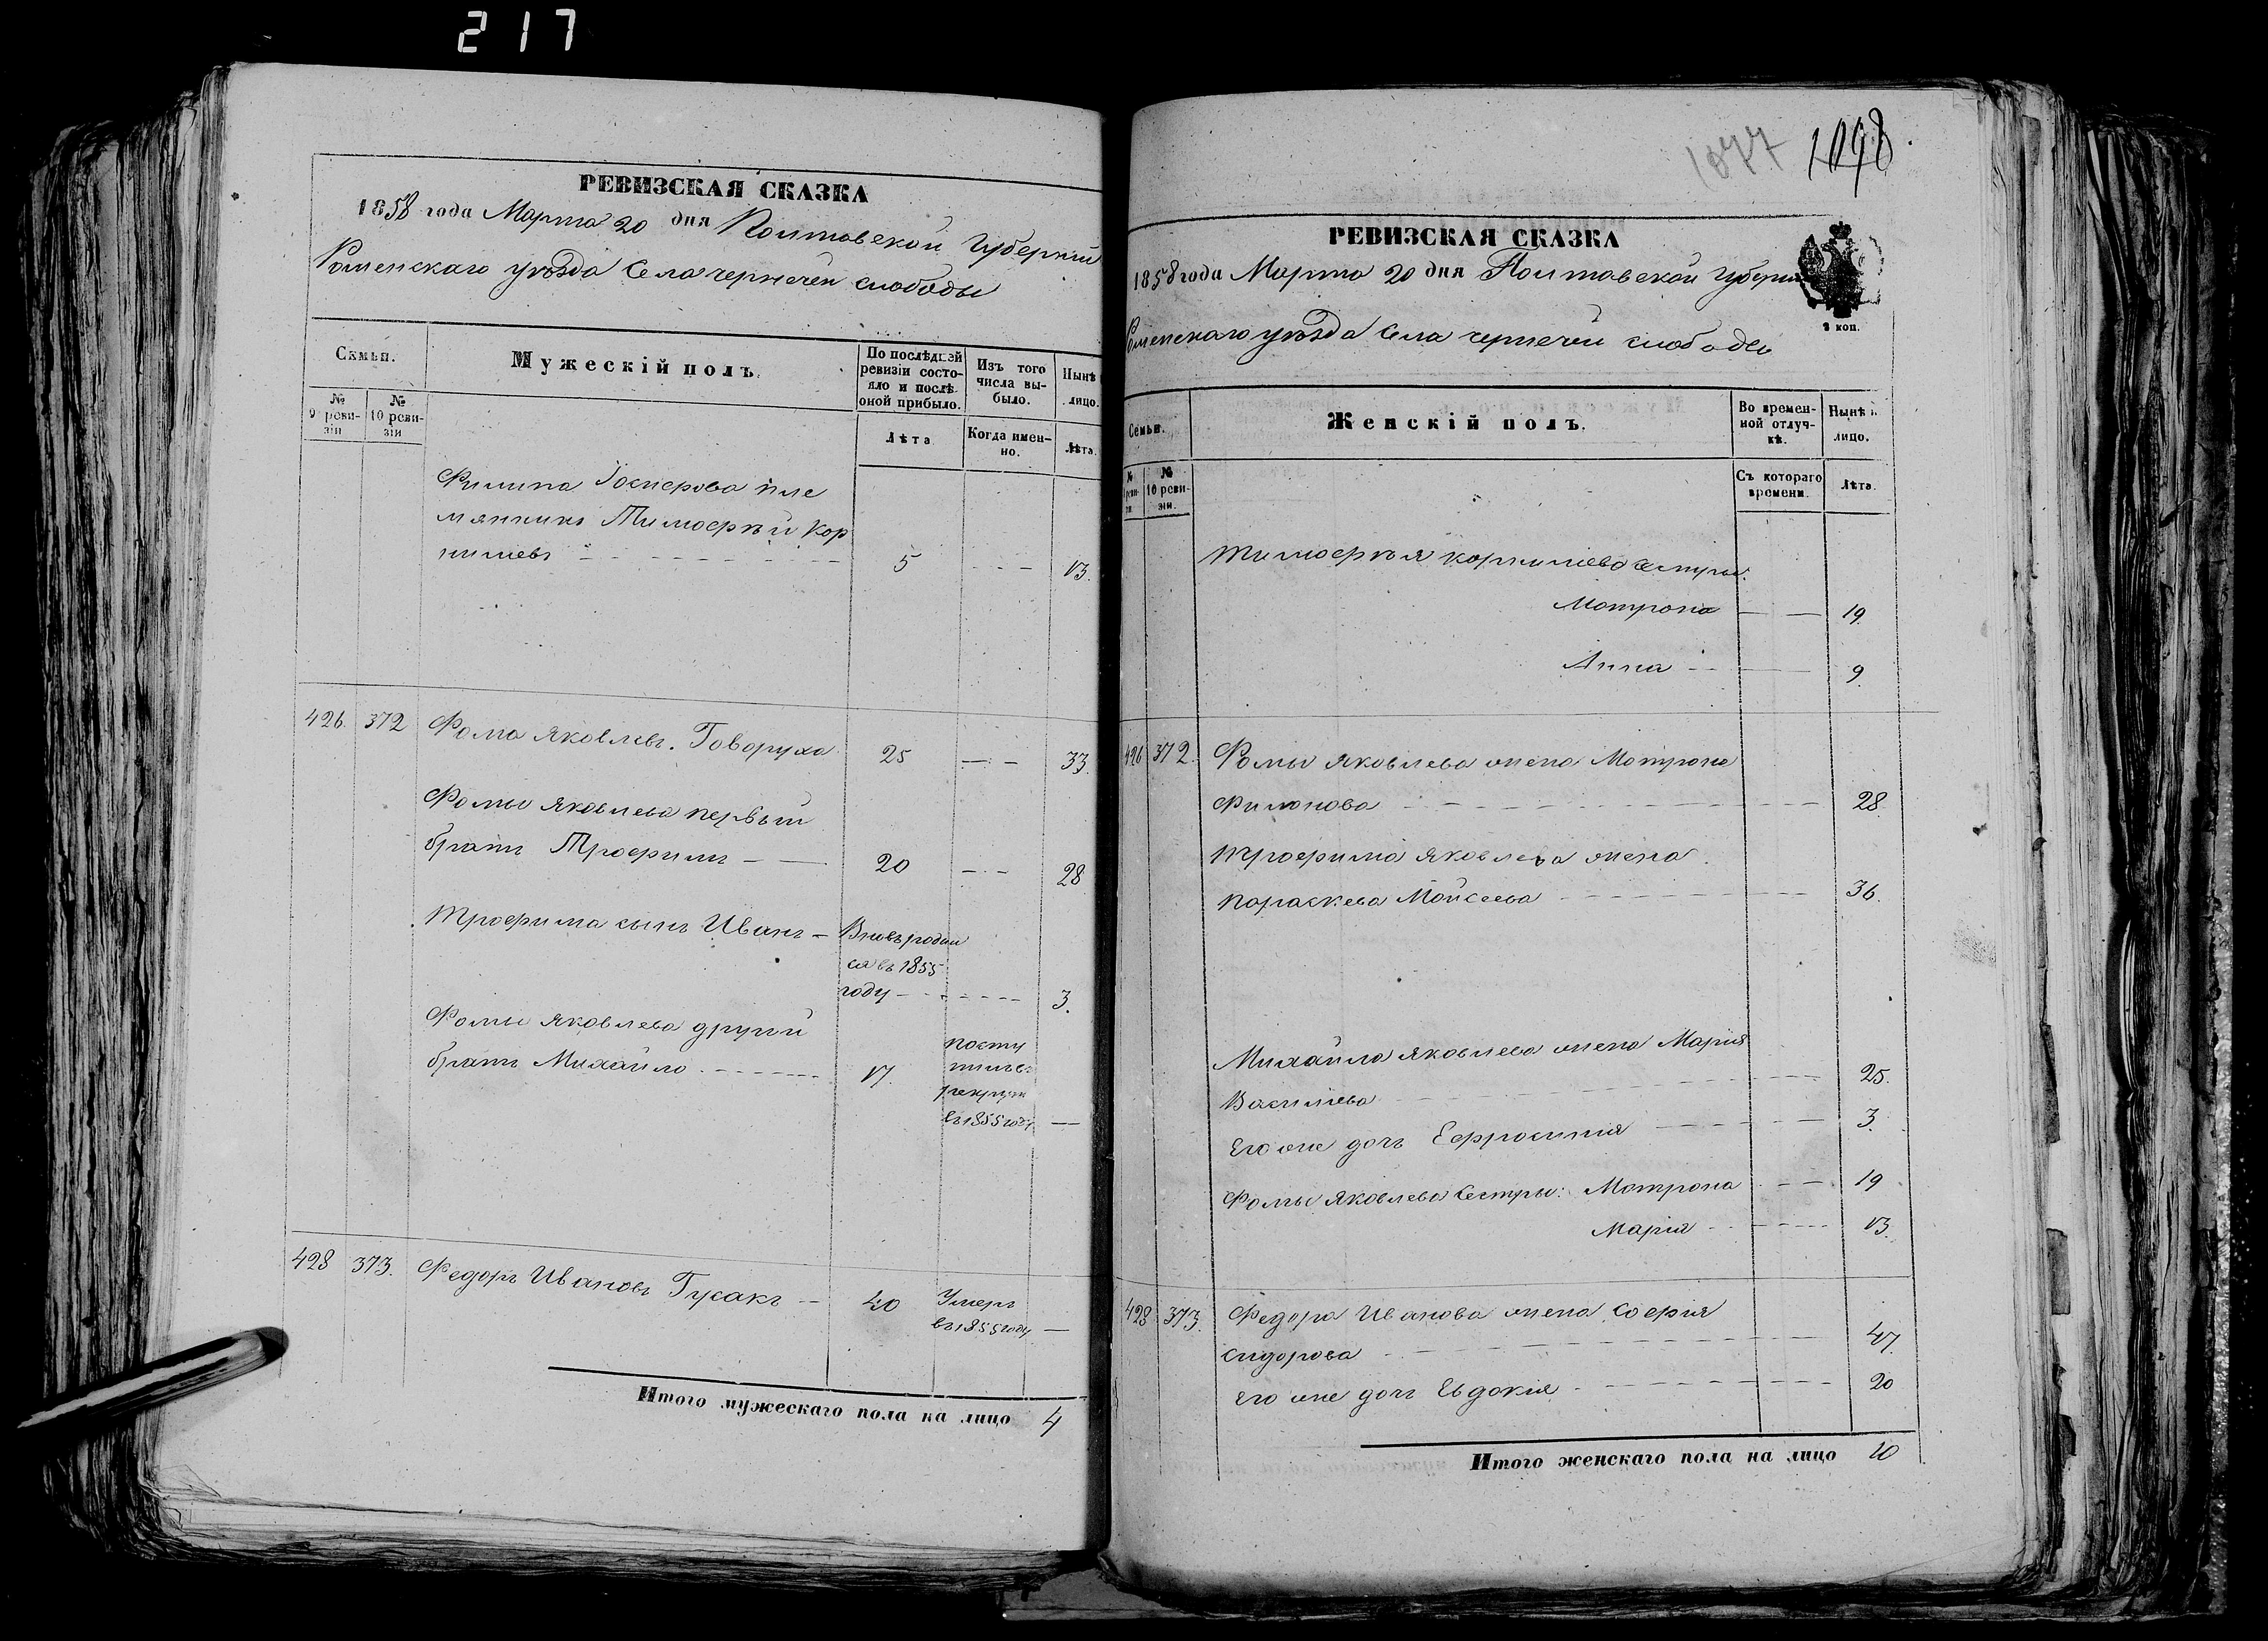 217
РЕВИЗСКАЯ СКАЗКА
1858 года Марта 20 дня Полтавской Губернии
Роменскаго уѣзда Села чернечей слободы
Семьи.
Мужескій полъ.
По послѣдней ревизіи состояло и послѣ оной прибыло.
Изъ того числа выбыло.
Нынѣ лицо.
№ 9 реви-зіи
№ 10 реви-зіи
Лѣта.
Когда имен-но.
Лѣта.
Филипа Іосиерова пле
мянникъ Тимофѣй Кор
нилиевъ 5 13.
426. 372 Фома Яковлевъ. Говоруха 25 33.
Фомы Яковлева первый
братъ Трофимъ 20 28
Трофима сынъ Иванъ Вновь родил
ся въ 1855
году 3.
Фомы Яковлева другий
братъ Михайло 17. посту
пилъ в
рекруты
въ 1855 году
428 373. Федоръ Ивановъ Гусакъ 40 Умеръ
въ 1855 году
Итого мужескаго пола на лицо 4
1077 1098
РЕВИЗСКАЯ СКАЗКА
1858 года Марта 20 дня Полтавской Губернии
Роменскаго уѣзда Села чернечей слободы
2 коп.
Семьи.
Женскій полъ.
Во времен-ной отлуч-кѣ.
Нынѣ н. лицо.
№ реви-зіи
№ 10 реви-зіи.
Съ котораго времени.
Лѣта.
Тимофѣя корнилиева сестры.
Мотрона 19.
Анна 9.
426 372. Фомы Яковлева жена Мотрона
Филонова 28.
Трофима Яковлева жена
Параскева Мойсеева 36.
Михайла Яковлева жена Марія
Василиева 25.
Его же дочь Ефросинія 3.
Фомы Яковлева Сестры: Мотрона 19
Марія 13.
428 373. Федора Иванова жена Софія
Сидорова 47.
Его же дочь Евдокія 20
Итого женскаго пола на лицо 10